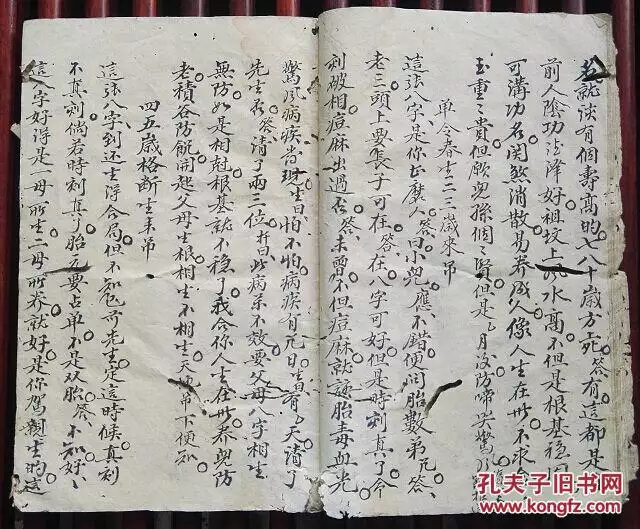 老就談有個壽高的七八十歲方死答有這都是
前人陰功法澤好祖坟上風水高不但是根基穩固
可溝功名関煞消散易养成人像人生在世不求金
玉重重貴但願児孫個個賢但是月没防啼哭驚
單令春生二三歲來吊
這張八字是你正庅人答曰小児應不錯便问胎數第几答
老三頭上要長子可在答在八字可好但是時刻真了今
刹破相痘麻出過否答未曾不但痘麻就
胎毒血光
驚風病疾常现生曰怕不怕病疾有
天請了
先生
答請了兩三位
此病茶不效要父母八字相生
無防如是相尅根基就不穩了我令你人生在世养児防
老積谷防飢開起父母生根相生不相生天
吊下便知
四五歲格断生来吊
這張八字到还生浮合局但不知
先生定這時候真刻
不真刻倘若時刻真了胎元要占单不是双胎答不知好
這八字好浮是一母所生二母所养就好是你駕
生的
孔夫子旧书网
KONGFZ.COM